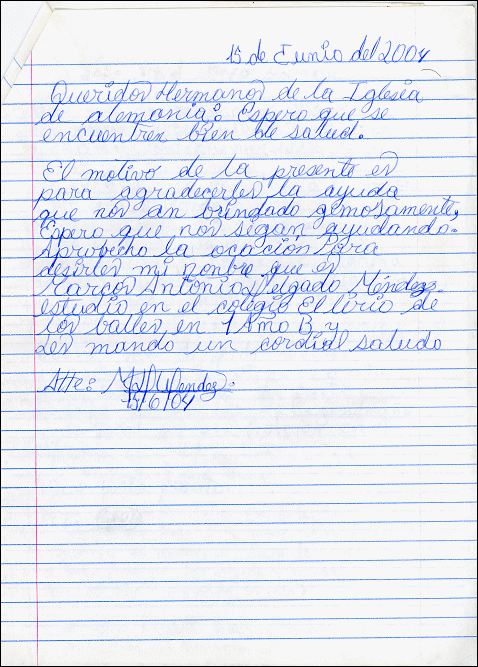 15 de Junio del 2004
Queridos Hermanos de la Iglesia
de alemania: Espero que se
encuentren bien de salud.
El motivo de la presente es
para agradecerles la ayuda
que nos an brindado gemosamente,
Espero que nos sigan ayudando.
Aprobecho la ocación Para
desirles mi nonbre que es
Marcos Antonio Delgado Méndez.
estudio en el colegio El lirio de
los balles en 1 Año B y
Les mando un cordial saludo
Atte: Mendez.
15/6/04